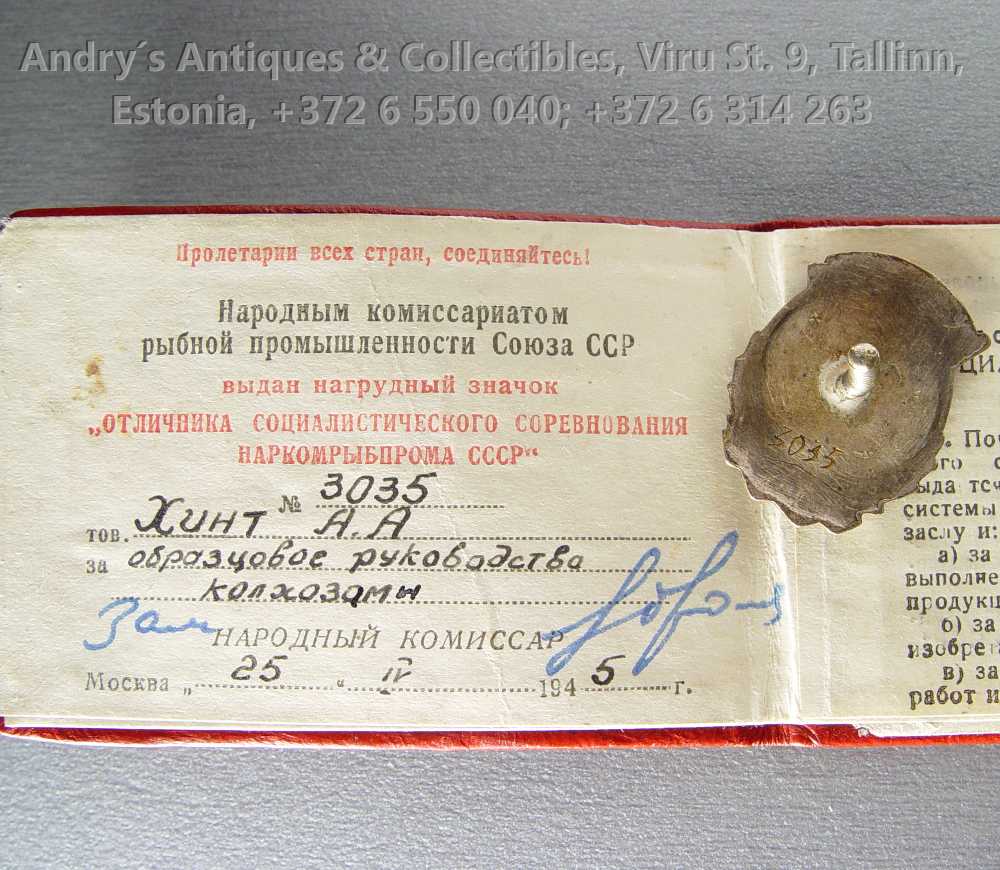 Andry´s Antiques & Collectibles, Viru St. 9, Tallinn,
Estonia, +372 6 550 040; +372 6 314 263
Пролетарии всех стран, соединяйтесь!
Народным комиссариатом
рыбной промышленности Союза ССР
выдан нагрудный значок
„ОТЛИЧНИКА СОЦИАЛИСТИЧЕСКОГО СОРЕВНОВАНИЯ
НАРКОМРЫБПРОМА СССР“
№ 3035
тов. Хинт А.А
за образцовое руководства
колхозами
Зам НАРОДНЫЙ КОМИССАР
Москва „25“ IV 1945 г.
3035
системы
заслу и:
а) за
выполне
продукц
б) за
изобрет
в) за
работ и